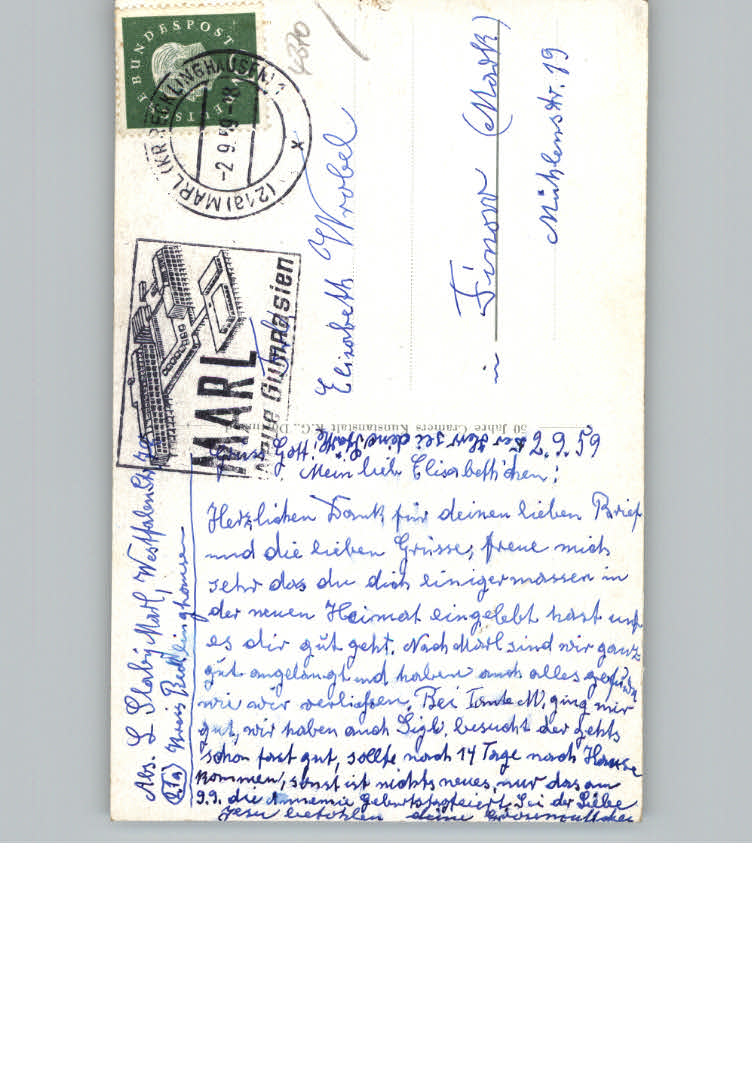 4370
DEUTSCHE BUNDESPOST
(21a) MARL (KR. RECKLINGHAUSEN) 1
-2.9.59-08
x
MARL
Neue Gymnasien
Elisabeth Wrobel
in Finow (Mark)
Mühlenstr. 19
50 Jahre Cramers Kunstanstalt K.G., Dortmund
Abs. L Slaby Marl, Westfalenstr
(21a) Kreis Recklinghausen
der Herr sei deine
59
Mein lieb Elisabethchen!
Herzlichen Dank für deinen lieben Brief
und die lieben Grüsse, freue mich
sehr das du dich einigermassen in
der neuen Heimat eingelebt hast und
es dir gut geht. Nach Marl sind wir ganz
gut angelangt und haben auch alles gefunden
wie wir verliessen. Bei Tante M. ging mir
gut, wir haben auch Sigb. besucht der gehts
schon fast gut, sollte nach 14 Tage nach Hause
kommen, sonst ist nichts neues, nur das am
9.9. die Annemie Geburtstag feiert. Sei der Liebe
Jesu befohlen deine Grossmutter